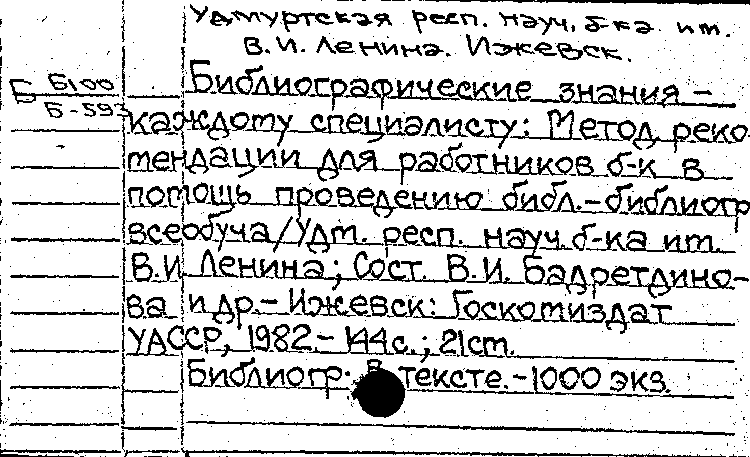 Удмуртская респ. науч. б-ка им.
В.И. Ленина. Ижевск.
Б Б100
Б-593
Библиографические знания -
каждому специалисту: Метод. реко
мендации для работников б-к в
помощь проведению библ.-библиогр
всеобуча/Удм. респ. науч. б-ка им.
В.И. Ленина; Сост. В.И. Бадретдино-
ва и др.- Ижевск: Госкомиздат
УАССР, 1982.- 144с.; 21см.
Библиогр. в тексте.-1000 экз.